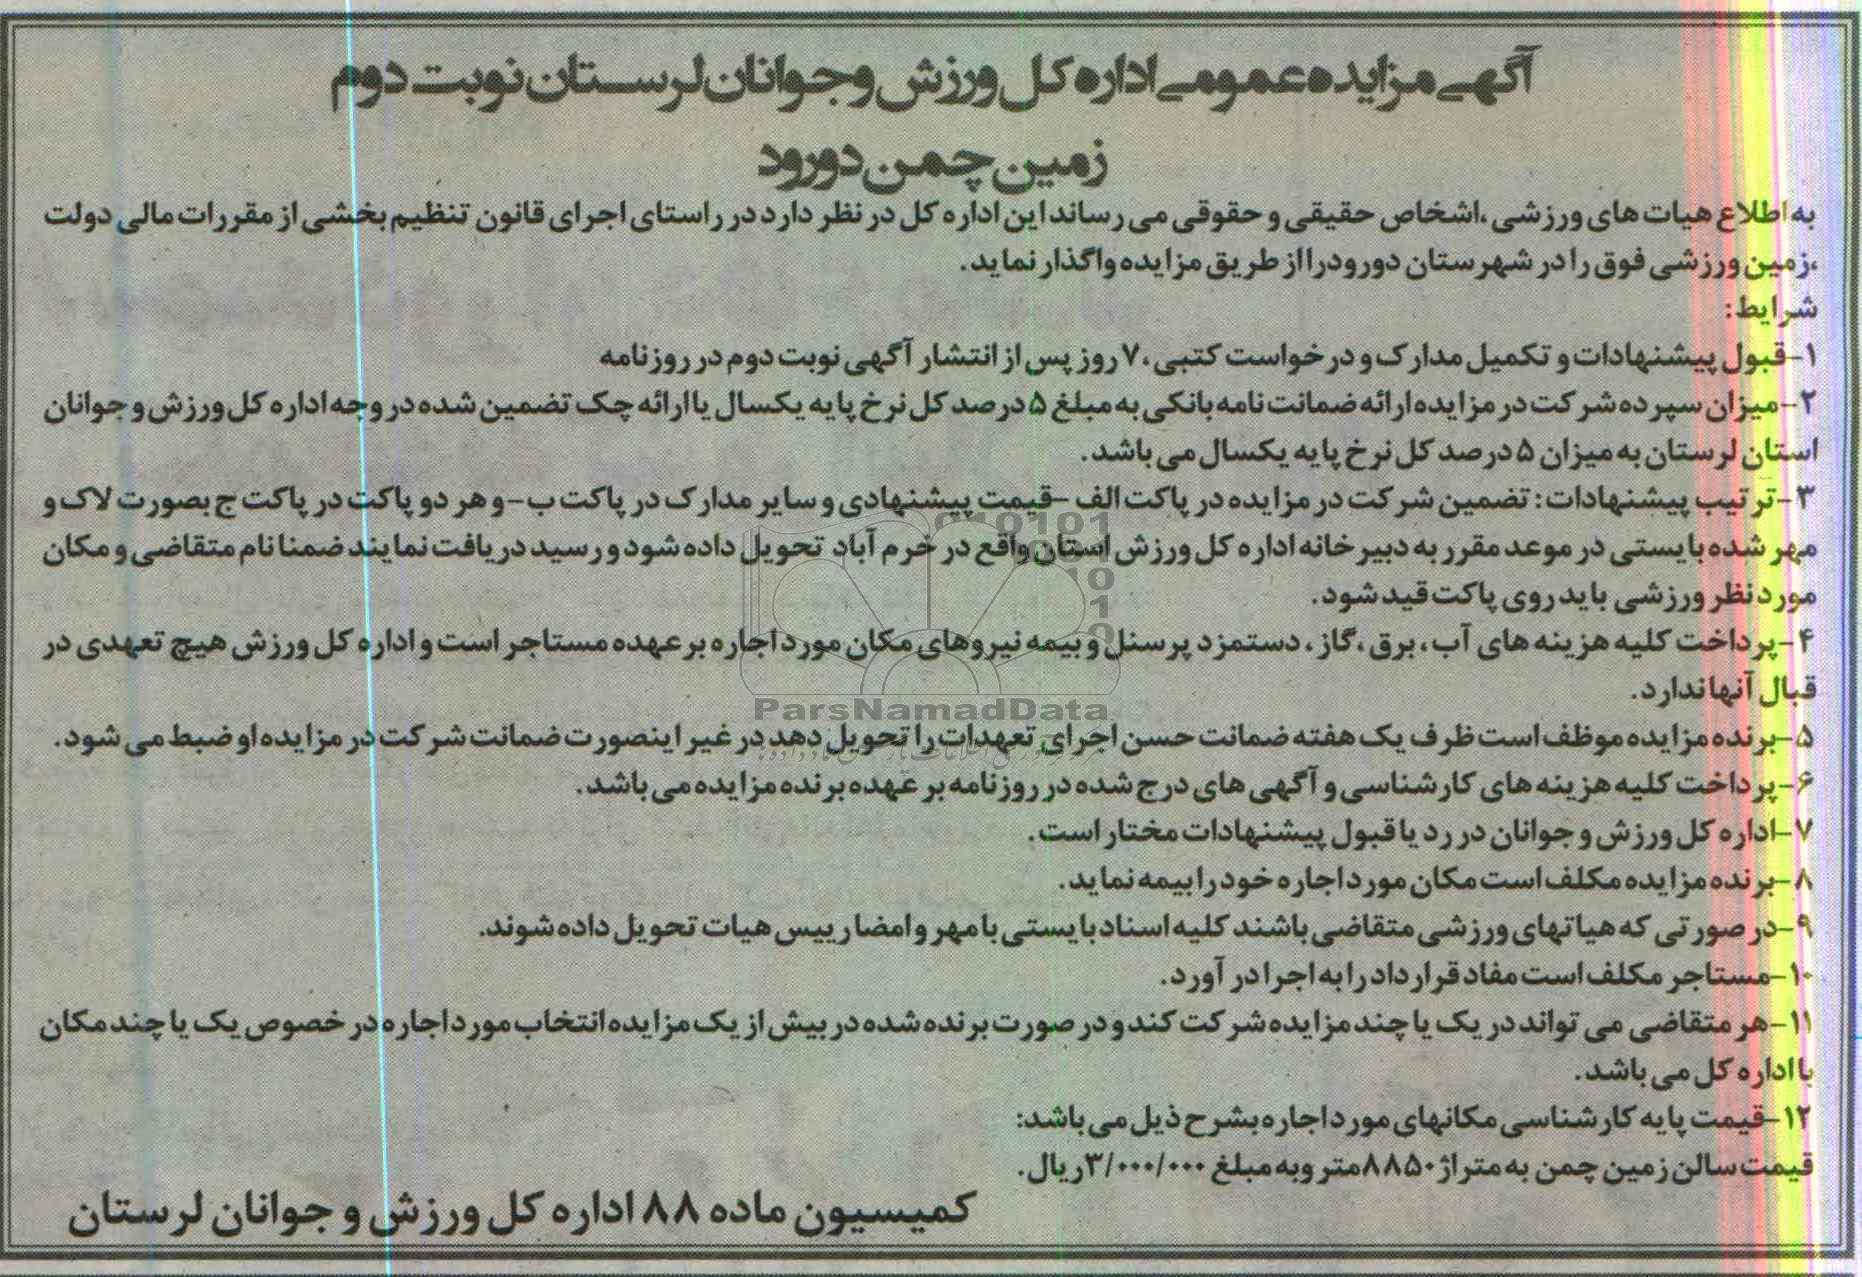 آگهی مزایده عمومی اداره کل ورزش و جوانان لرستان نوبت دوم
زمین چمن دورود
به اطلاع هیات های ورزشی ،اشخاص حقیقی و حقوقی می رساند این اداره کل در نظر دارد در راستای اجرای قانون تنظیم بخشی از مقررات مالی دولت
،زمین ورزشی فوق را در شهرستان دورود را از طریق مزایده واگذار نماید.
شرایط:
۱-قبول پیشنهادات و تکمیل مدارک و درخواست کتبی ،۷ روز پس از انتشار آگهی نوبت دوم در روزنامه
۲-میزان سپرده شرکت در مزایده ارائه ضمانت نامه بانکی به مبلغ ۵ درصد کل نرخ پایه یکسال یا ارائه چک تضمین شده در وجه اداره کل ورزش و جوانان
استان لرستان به میزان ۵ درصد کل نرخ پایه یکسال می باشد.
۳-ترتیب پیشنهادات: تضمین شرکت در مزایده در پاکت الف -قیمت پیشنهادی و سایر مدارک در پاکت ب-و هر دو پاکت در پاکت ج بصورت لاک و
مهر شده بایستی در موعد مقرر به دبیرخانه اداره کل ورزش استان واقع در خرم آباد تحویل داده شود و رسید دریافت نمایند ضمنا نام متقاضی و مکان
مورد نظر ورزشی باید روی پاکت قید شود.
۴-پرداخت کلیه هزینه های آب، برق ،گاز ، دستمزد پرسنل و بیمه نیروهای مکان مورد اجاره بر عهده مستاجر است و اداره کل ورزش هیچ تعهدی در
قبال آنها ندارد.
۵-برنده مزایده موظف است ظرف یک هفته ضمانت حسن اجرای تعهدات را تحویل دهد در غیر اینصورت ضمانت شرکت در مزایده او ضبط می شود.
۶-پرداخت کلیه هزینه های کارشناسی و آگهی های درج شده در روزنامه بر عهده برنده مزایده می باشد.
۷-اداره کل ورزش و جوانان در رد یا قبول پیشنهادات مختار است.
۸-برنده مزایده مکلف است مکان مورد اجاره خود را بیمه نماید.
۹-در صورتی که هیاتهای ورزشی متقاضی باشند کلیه اسناد بایستی با مهر و امضا رییس هیات تحویل داده شوند.
۱۰-مستاجر مکلف است مفاد قرارداد را به اجرا در آورد.
۱۱-هر متقاضی می تواند در یک یا چند مزایده شرکت کند و در صورت برنده شده در بیش از یک مزایده انتخاب مورد اجاره در خصوص یک یا چند مکان
با اداره کل می باشد.
۱۲-قیمت پایه کارشناسی مکانهای مورد اجاره بشرح ذیل می باشد:
قیمت سالن زمین چمن به متراژ ۸۸۵۰متر و به مبلغ ۳/۰۰۰/۰۰۰ریال.
کمیسیون ماده ۸۸ اداره کل ورزش و جوانان لرستان
ParsNamadData